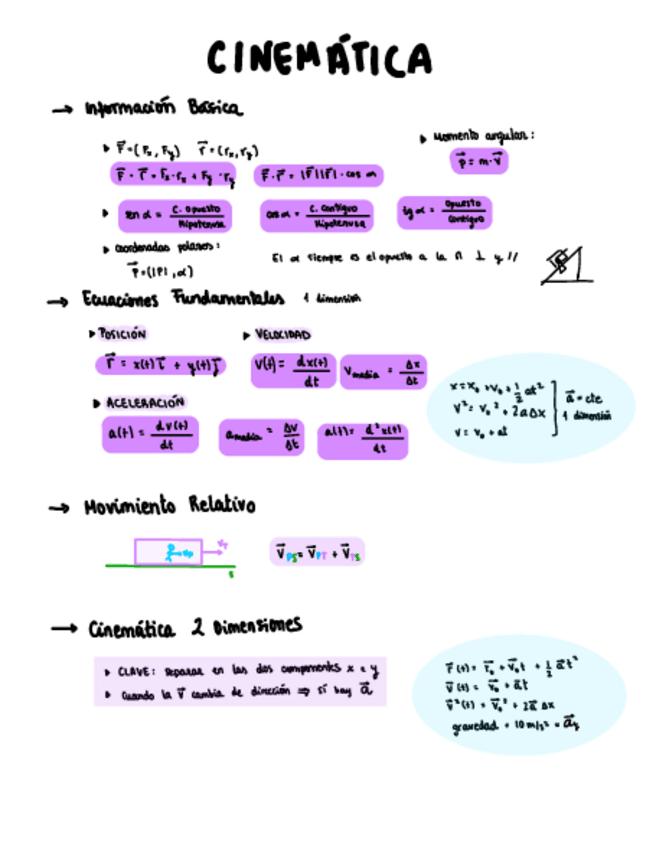 CINEMÁTICA
→ Información Básica
▸ F⃗=(Fx, Fy) r⃗=(rx, ry)
▸ Momento angular:
F⃗ · r⃗ = Fx·rx + Fy·ry
F⃗·r⃗ = |F⃗||r⃗| · cos α
p⃗ = m·v⃗
▸ sen α = C. opuesto / Hipotenusa
cos α = C. contiguo / Hipotenusa
tg α = opuesto / contiguo
▸ coordenadas polares:
P⃗=(|P|, α)
El α siempre es el opuesto a la n ⊥ y //
→ Ecuaciones Fundamentales 1 dimensión
▸ POSICIÓN
▸ VELOCIDAD
r⃗ = x(t) i⃗ + y(t) j⃗
V(t) = dx(t) / dt
Vmedia = Δx / Δt
▸ ACELERACIÓN
a(t) = dv(t) / dt
amedia = Δv / Δt
a(t) = d²x(t) / dt
x = x₀ + v₀ + 1/2 at²
V² = V₀² + 2aΔx
v = v₀ + at
a⃗ = cte
1 dimensión
→ Movimiento Relativo
VT
VP
S
V⃗PS = V⃗PT + V⃗TS
→ Cinemática 2 Dimensiones
▸ CLAVE: separar en las dos componentes x e y
▸ Cuando la v⃗ cambia de dirección ⇒ sí hay a⃗
r⃗(t) = r⃗₀ + v⃗₀t + 1/2 a⃗t²
v⃗(t) = v⃗₀ + a⃗t
v⃗²(t) = v⃗₀² + 2a⃗ Δx
gravedad = 10 m/s² = a⃗y